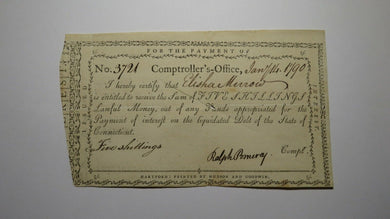 FOR THE PAYMENT OF
No. 3721 Comptroller's-Office, Jan'y 14 1790
I hereby certify that Elisha
is entitled to receive the Sum of FIVE SHILLINGS
Lawful Money, out of any Funds appropriated for the
Payment of interest on the liquidated Debt of the State of
Connecticut.
Five shillings
Ralph Pomeroy Compt.
HARTFORD: PRINTED BY HUDSON AND GOODWIN.
INTEREST.